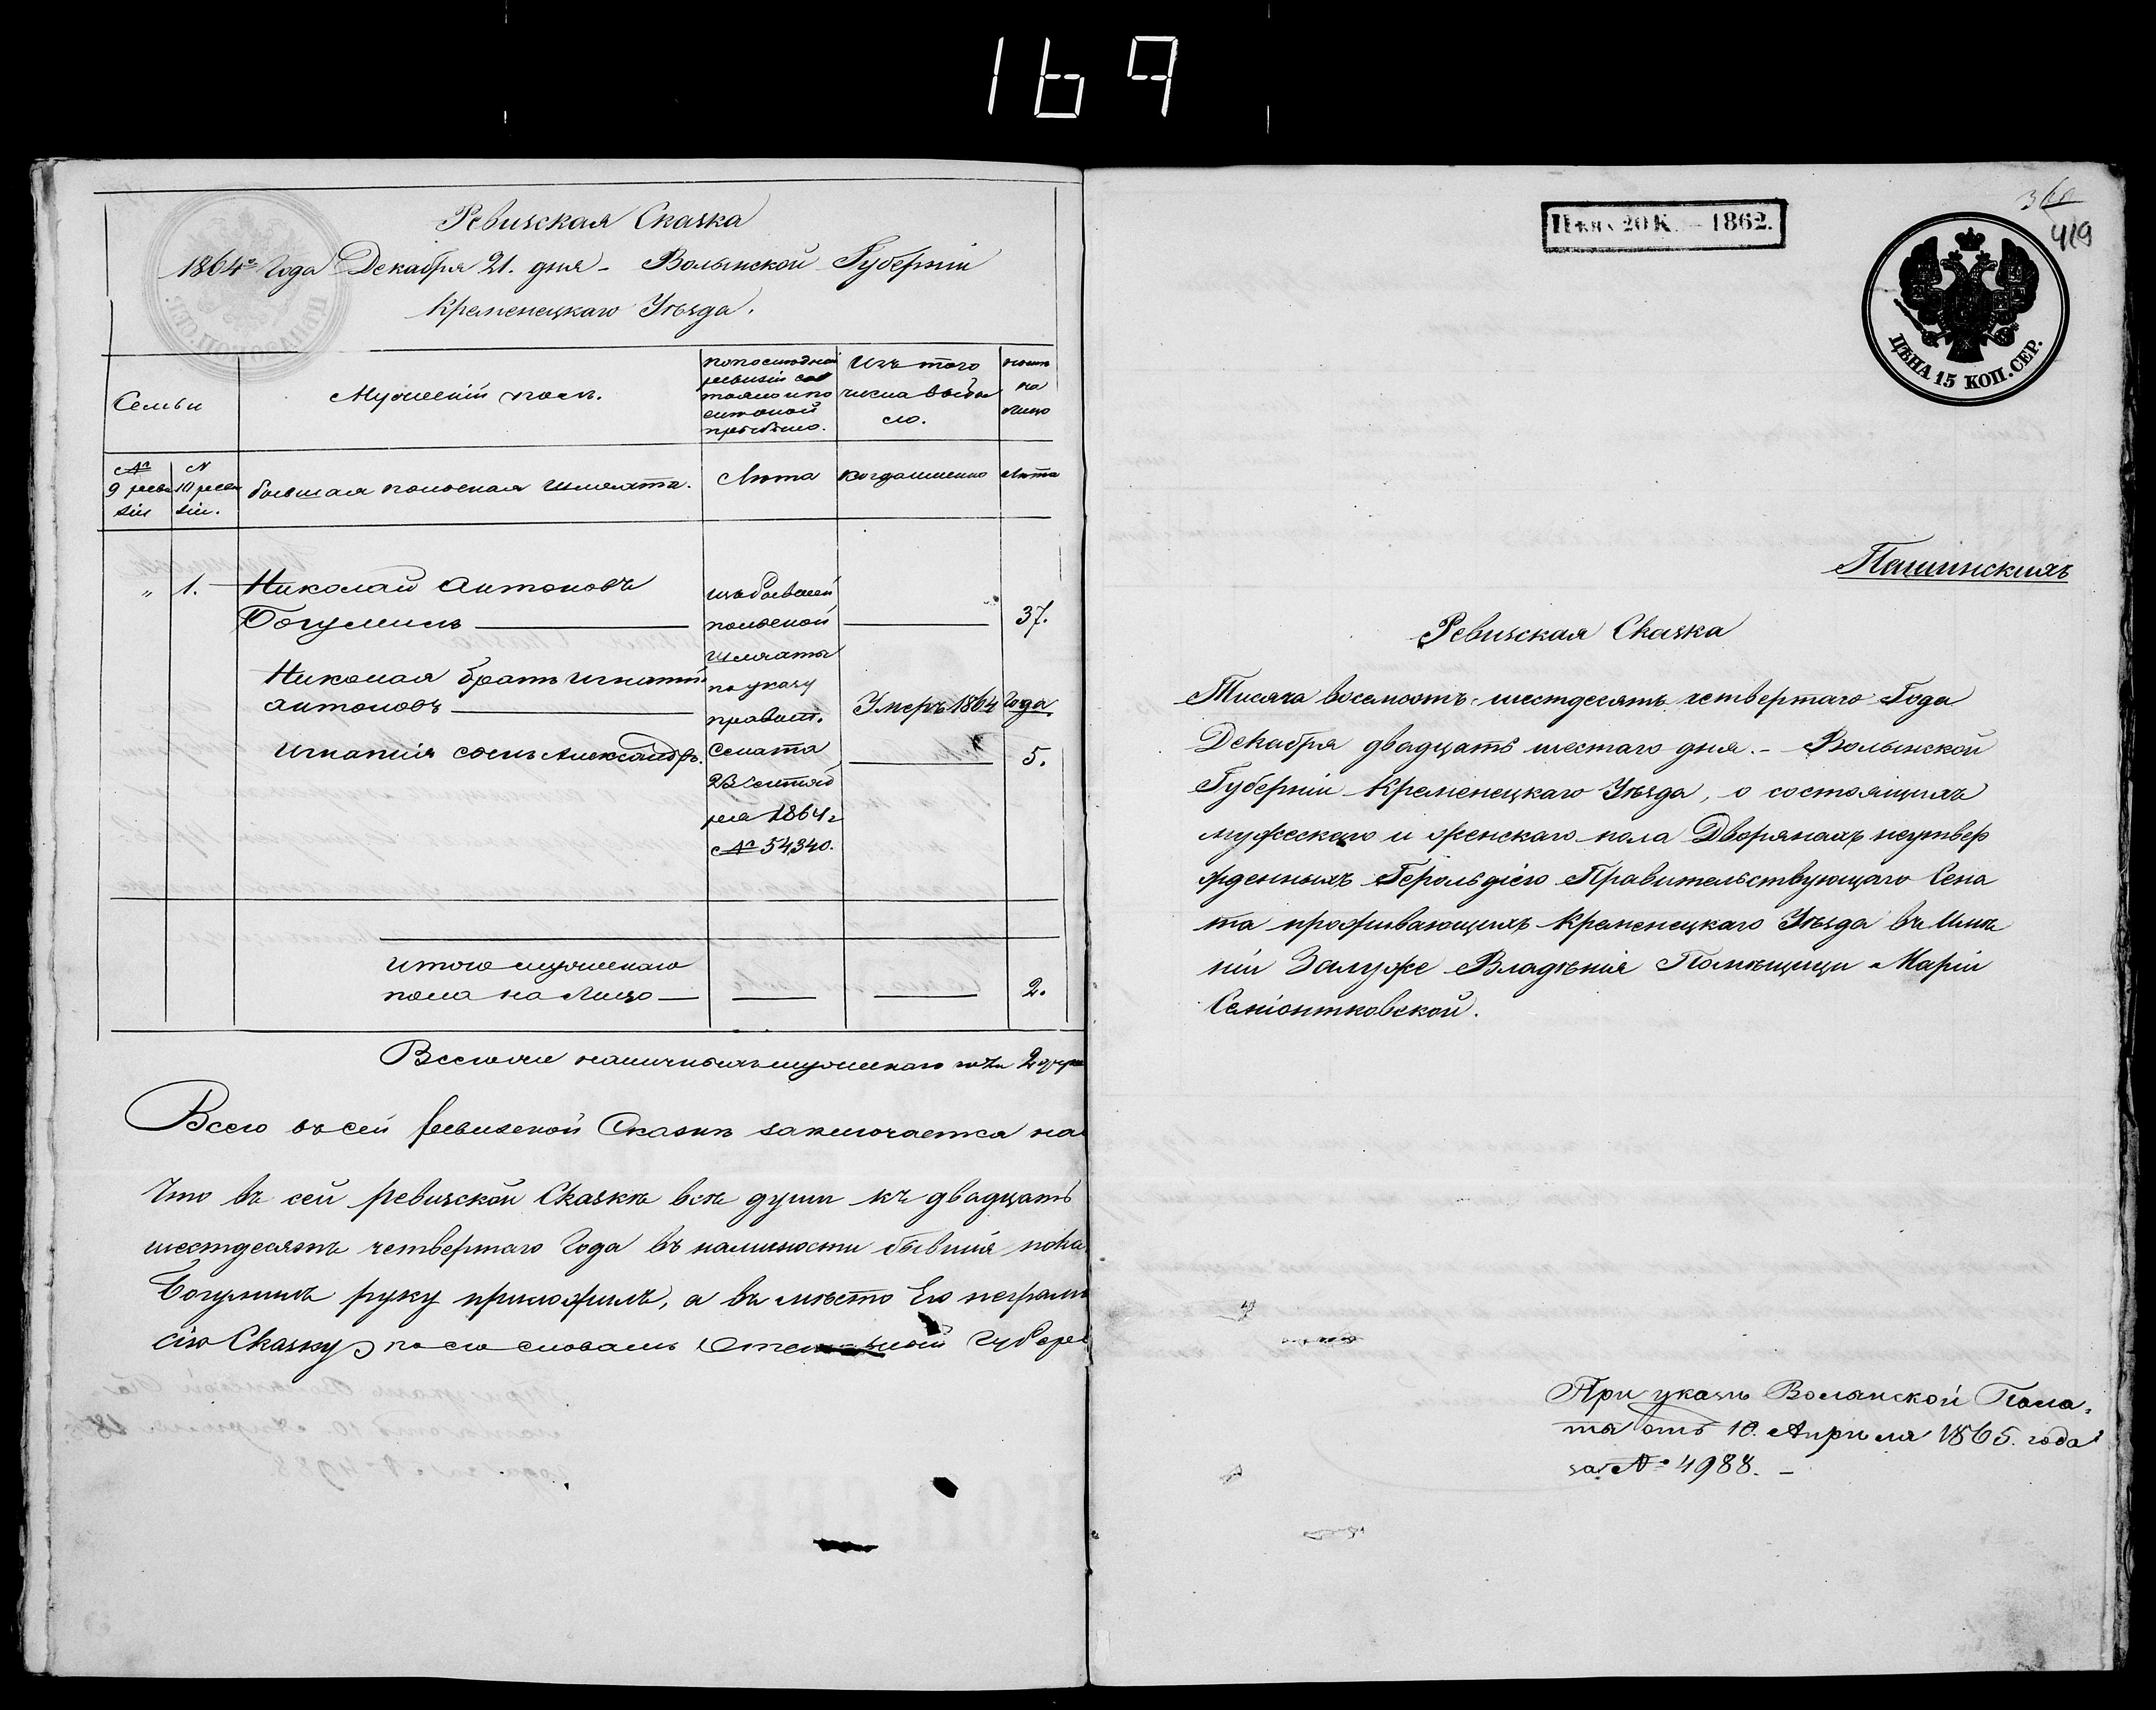 169
Ревизская Сказка
1864го Года Декабря 21. дня - Волынской Губерніи
Кременецкаго Уѣзда.
Семьи
Мужескій полъ.
По последней
ревизіи сос
тояло и по
слѣ оной
прибыло.
Изъ того
числа выбы
ло.
нынѣ
на
лицо
№
9 реви
зіи
№
10 реви
зіи.
бывшая польская шляхта.
Лѣта
когда именно
Лѣта
" 1. Николай Антоновъ
Богумилъ
изъ бывшей
польской
шляхты
по указу
правит.
Сената
23 Сентяб
ря 1864 г
№ 54,340.
37.
Николая братъ Игнатій
Антоновъ
Умеръ 1864 Года.
Игнатія сынъ Александръ.
5.
Итого мужескаго
пола на Лицо
2.
Всего же наличныхъ мужескаго пола 2 души
Всего въ сей ревизской Сказкѣ заключается на
Что въ сей ревизской Сказкѣ всѣ души къ двадцать
шестдесятъ четвертаго Года въ наличности бывшія пока
Богумилъ руку приложилъ, а въ мѣсто Его неграм
сію Сказку по его словамъ
Цѣна 20 К. - 1862.
360
419
ЦѢНА 15 КОП. СЕР.
Пашинскихъ
Ревизская Сказка
Тисяча восемсотъ шестдесятъ четвертаго Года
Декабря двадцать шестаго дня. - Волынской
Губерніи Кременецкаго Уѣзда, о состоящихъ
мужескаго и женскаго пола Дворянахъ неутвер
жденныхъ Герольдіею Правительствующаго Сена
та проживающихъ Кременецкаго Уѣзда въ Имѣ
ніи Залуже Владѣнія Помѣщици Маріи
Семіонтковской.
При указѣ Волынской Пала,
ты отъ 10. Апрѣля 1865. года
за № 4988. -